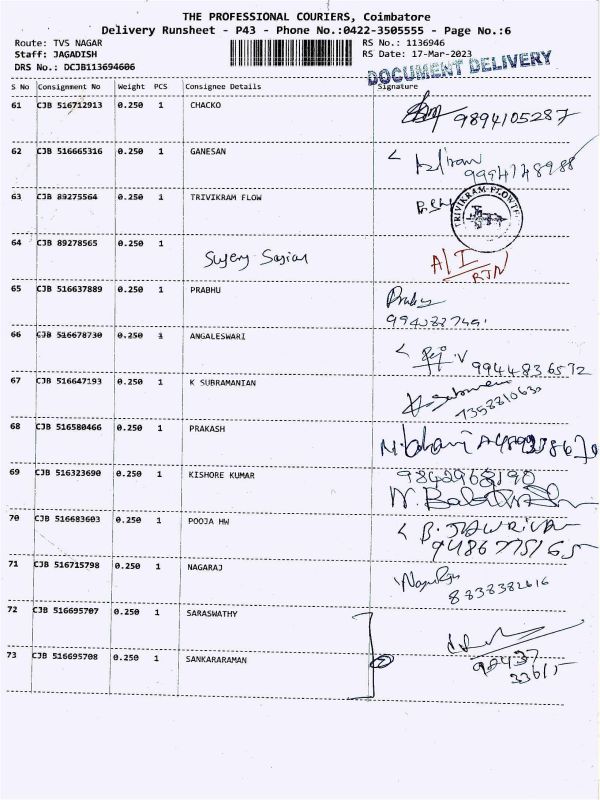 THE PROFESSIONAL COURIERS, Coimbatore
Delivery Runsheet - P43 - Phone No.:0422-3505555 - Page No.:6
Route: TVS NAGAR RS No.: 1136946
Staff: JAGADISH RS Date: 17-Mar-2023
DRS No.: DCJB113694606
DOCUMENT DELIVERY
S No Consignment No Weight PCS Consignee Details Signature
61 CJB 516712913 0.250 1 CHACKO 9894105287
62 CJB 516665316 0.250 1 GANESAN
63 CJB 89275564 0.250 1 TRIVIKRAM FLOW
TRIVIKRAM FLOWTE
64 CJB 89278565 0.250 1 A/I
RTN
65 CJB 516637889 0.250 1 PRABHU Prabu
66 CJB 516678730 0.250 1 ANGALESWARI
9944836572
67 CJB 516647193 0.250 1 K SUBRAMANIAN
7358810630
68 CJB 516580466 0.250 1 PRAKASH
69 CJB 516323690 0.250 1 KISHORE KUMAR 9842968190
70 CJB 516683603 0.250 1 POOJA HW
9486775165
71 CJB 516715798 0.250 1 NAGARAJ
8838382616
72 CJB 516695707 0.250 1 SARASWATHY
73 CJB 516695708 0.250 1 SANKARARAMAN 92437
33615